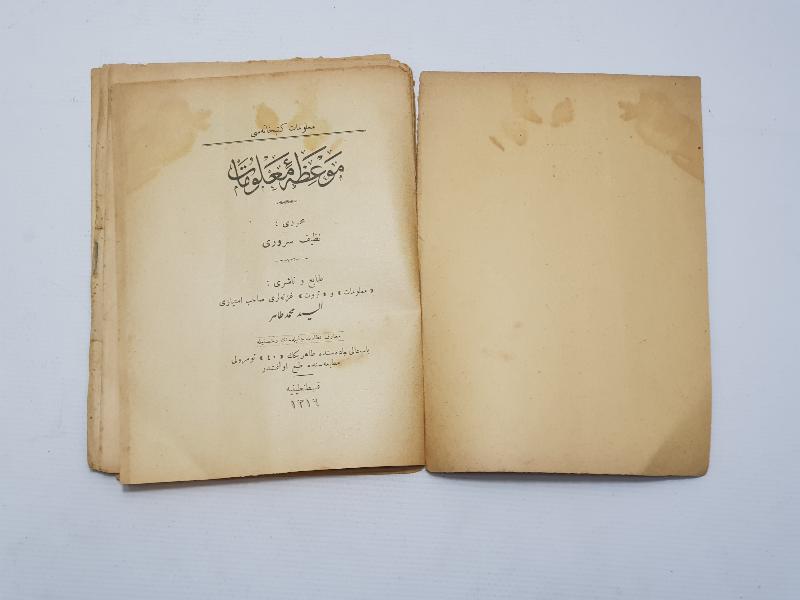 معلومات كتبخانه‌سی
موعظهٔ معلومات
محرری :
نظیف سروری
طابع و ناشری :
« معلومات » و « ثروت » غزته‌لری صاحب امتیازی
السید محمد طاهر
معارف نظارت جلیله‌سنك رخصتیله
باب‌عالی جاده‌سنده طاهر بكك « ٤٠ » نومرولی
مطبعه‌سنده طبع اولنمشدر
قسطنطینیه
١٣١٦